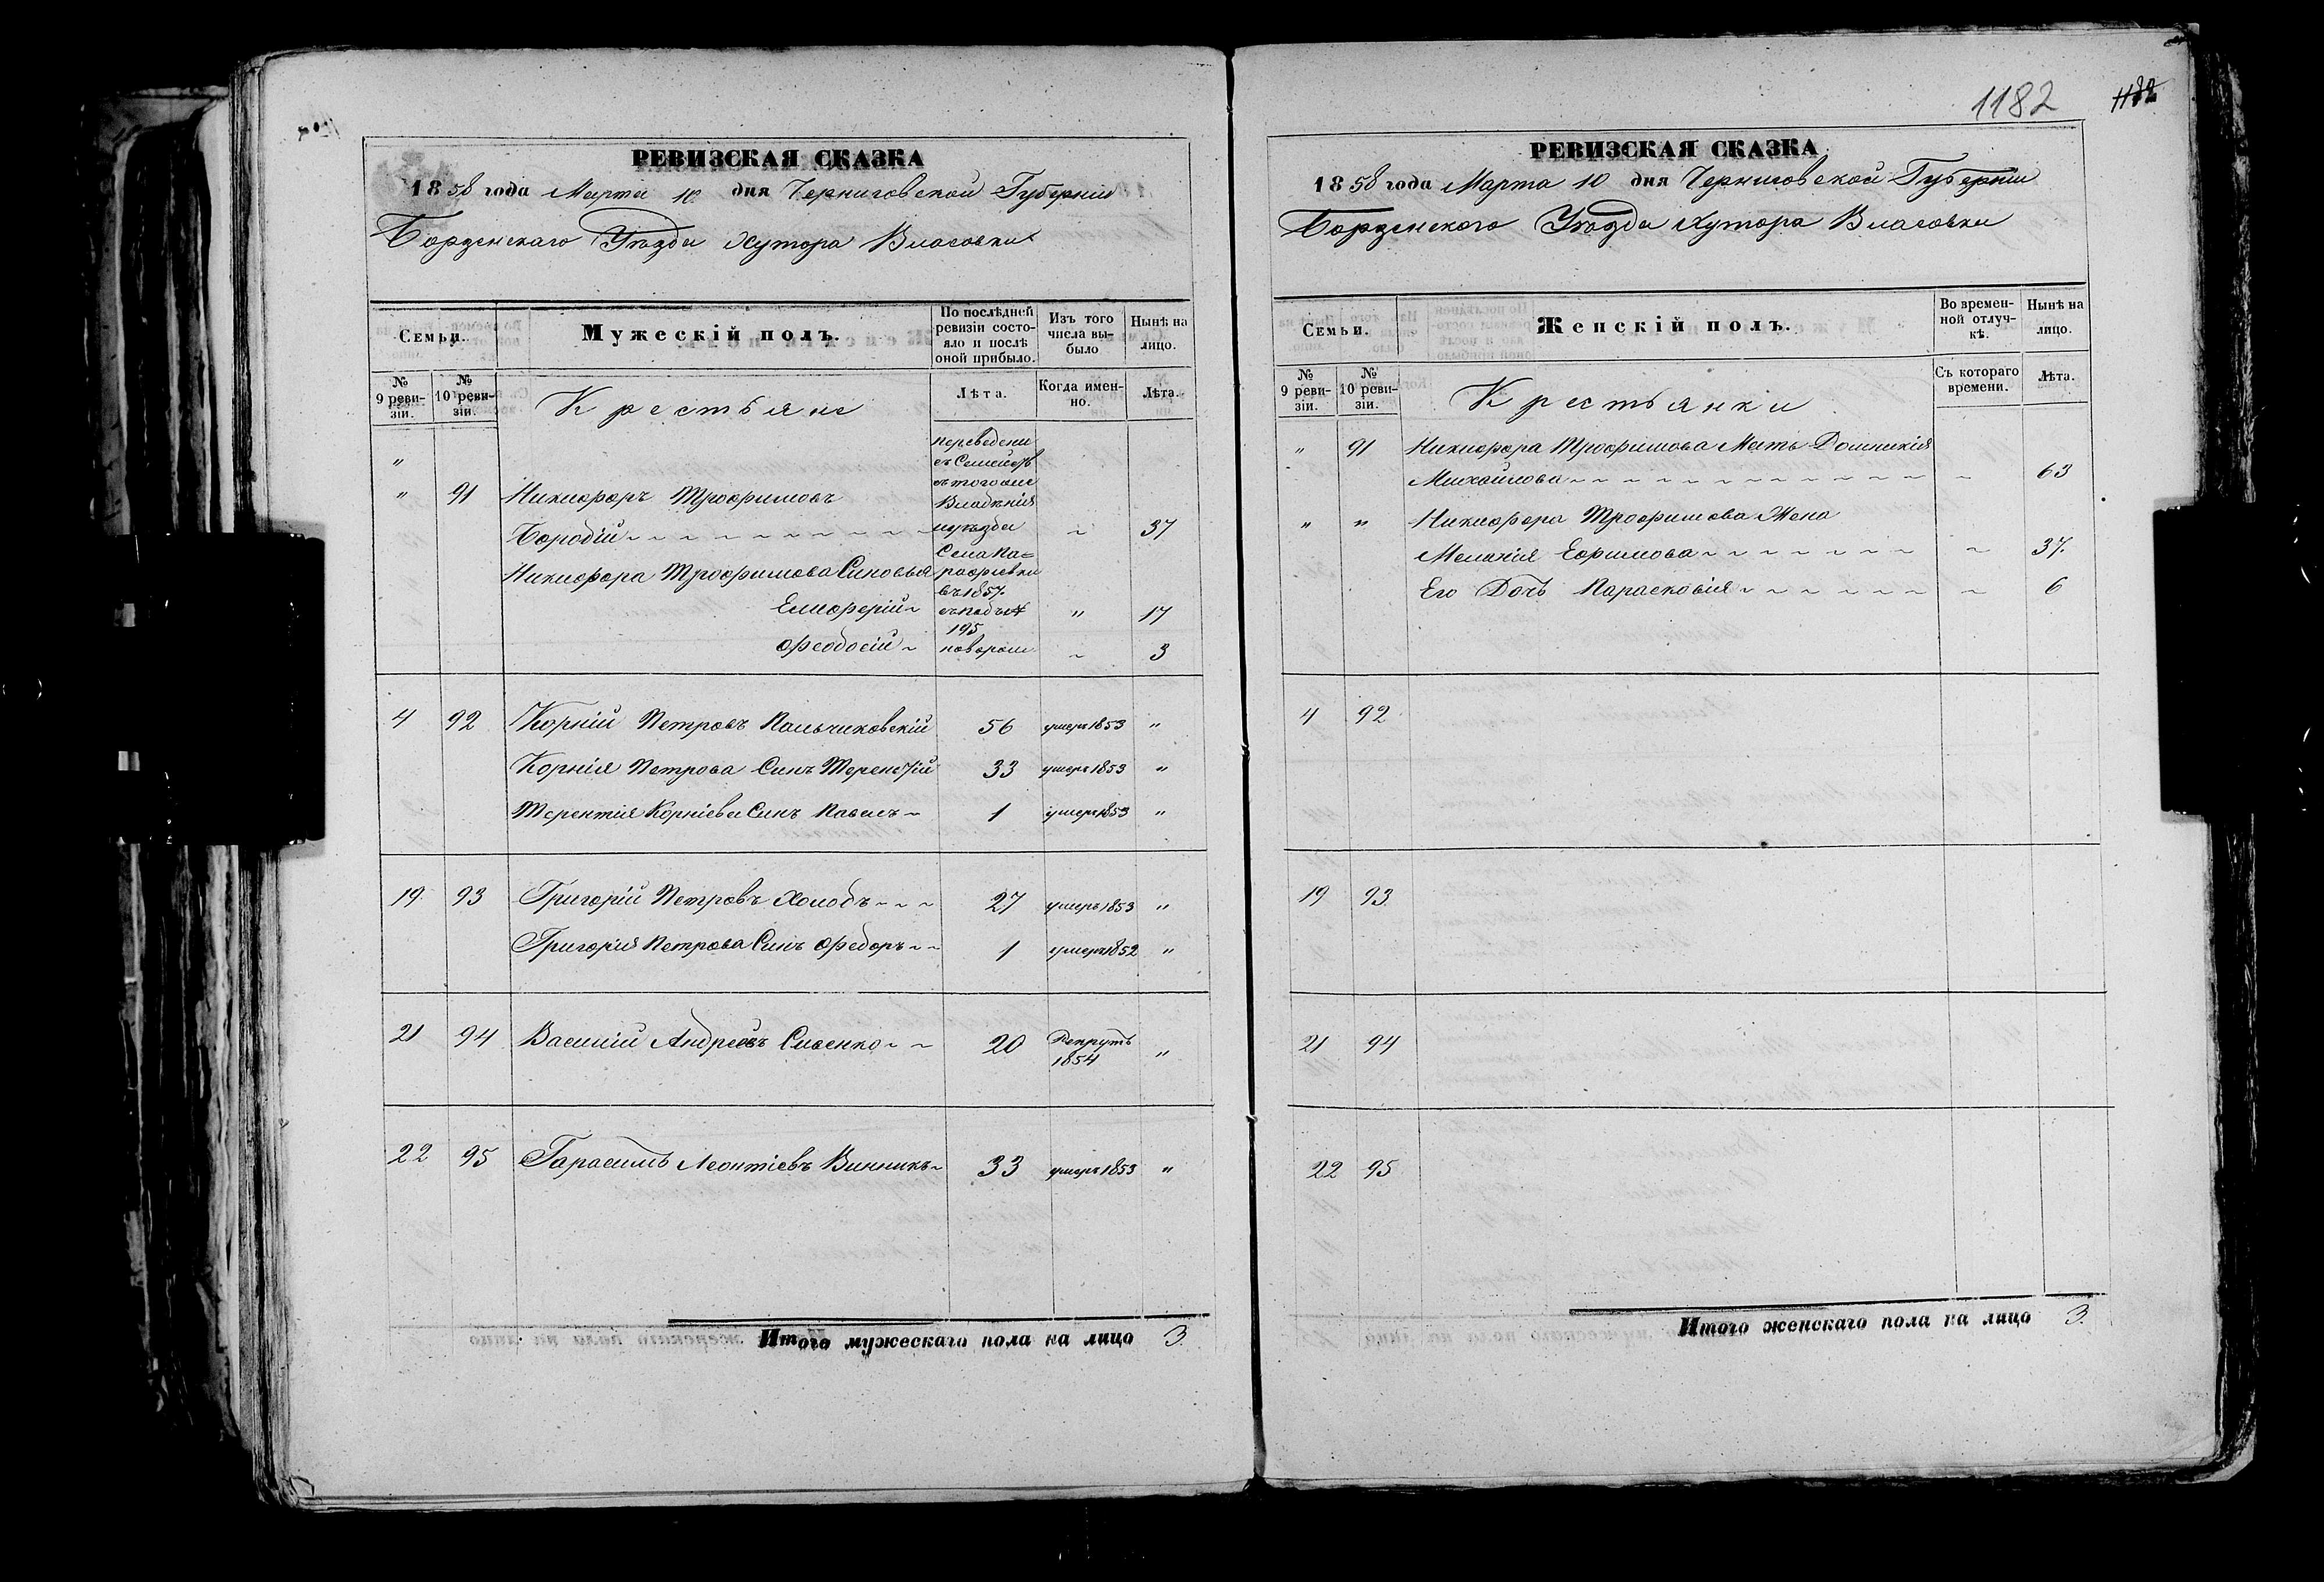 1182
1182
РЕВИЗСКАЯ СКАЗКА
1858 года Марта 10 дня Черниговской Губерніи
Борзенскаго Уѣзда Хутора Власовки
Семьи.
Мужескій полъ.
По послѣдней ревизіи состояло и послѣ оной прибыло.
Изъ того числа выбыло
Нынѣ на лицо.
№ 9 ревизіи.
№ 10 ревизіи.
Крестьяне
Лѣта.
Когда именно.
Лѣта.
переведени
съ Семейств
этого же
Владѣнія
и уѣзда
Села Па=
рафіевки
въ 1857.
съ подъ №
195
" 91 Никифоръ Трофимовъ
Бородій 37
Никифора Трофимова Синовья
Елиоферій " 17
Феодосій новорож 3
4 92 Корній Петровъ Пальчиковскій 56 умеръ 1853 "
Корнія Петрова Синъ Терентій 33 умеръ 1853 "
Терентія Корніева Синъ Павелъ 1 умеръ 1853 "
19 93 Григорій Петровъ Холодъ 27 умеръ 1853 "
Григорія Петрова Синъ Федоръ 1 умеръ 1852 "
21 94 Василій Андреевъ Сисенко 20 Рекрутъ 1854 "
22 95 Гарасимъ Леонтіевъ Винникъ 33 умеръ 1853 "
Итого мужескаго пола на лицо 3.
РЕВИЗСКАЯ СКАЗКА
1858 года Марта 10 дня Черниговской Губерніи
Борзенского Уѣзда Хутора Власовки
Семьи.
Женскій полъ.
Во временной отлучкѣ.
Нынѣ на лицо.
№ 9 ревизіи.
№ 10 ревизіи.
Крестьянки
Съ котораго времени.
Лѣта.
" 91 Никифора Трофимова Мать Домникія
Михайлова 63
" " Никифора Трофимова Жена
Меланія Ефимова 37.
Его Дочь Парасковія 6
4 92
19 93
21 94
22 95
Итого женскаго пола на лицо 3.